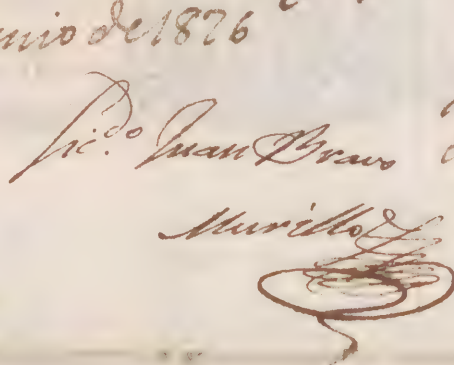 unio de 1826
Licdo Juan Bravo
Murillo